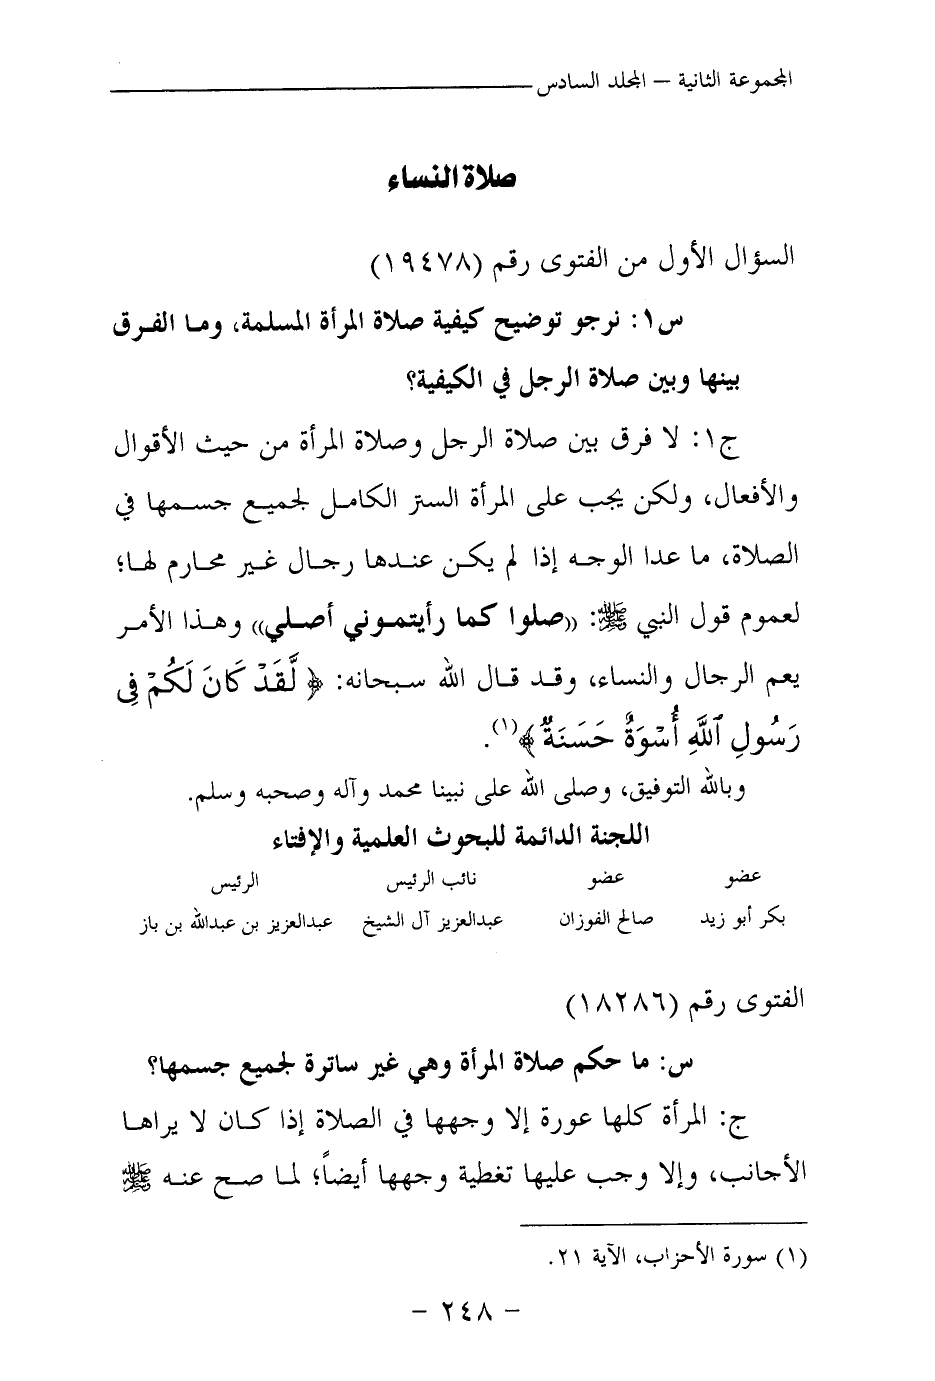 المجموعة الثانية – المجلد السادس
صلاة النساء
السؤال الأول من الفتوى رقم (١٩٤٧٨)
س١: نرجو توضيح كيفية صلاة المرأة المسلمة، وما الفرق
بينها وبين صلاة الرجل في الكيفية؟
ج١: لا فرق بين صلاة الرجل وصلاة المرأة من حيث الأقوال
والأفعال، ولكن يجب على المرأة الستر الكامل لجميع جسمها في
الصلاة، ما عدا الوجه إذا لم يكن عندها رجال غير محارم لها؛
لعموم قول النبي ﷺ: ((صلوا كما رأيتموني أصلي)) وهذا الأمر
يعم الرجال والنساء، وقد قال الله سبحانه: ﴿ لَّقَدْ كَانَ لَكُمْ فِى
رَسُولِ ٱللَّهِ أُسْوَةٌ حَسَنَةٌ ﴾(١).
وبالله التوفيق، وصلى الله على نبينا محمد وآله وصحبه وسلم.
اللجنة الدائمة للبحوث العلمية والإفتاء
عضو عضو نائب الرئيس الرئيس
بكر أبو زيد صالح الفوزان عبدالعزيز آل الشيخ عبدالعزيز بن عبدالله بن باز
الفتوى رقم (١٨٢٨٦)
س: ما حكم صلاة المرأة وهي غير ساترة لجميع جسمها؟
ج: المرأة كلها عورة إلا وجهها في الصلاة إذا كان لا يراها
الأجانب، وإلا وجب عليها تغطية وجهها أيضاً؛ لما صح عنه ﷺ
(١) سورة الأحزاب، الآية ٢١.
– ٢٤٨ –